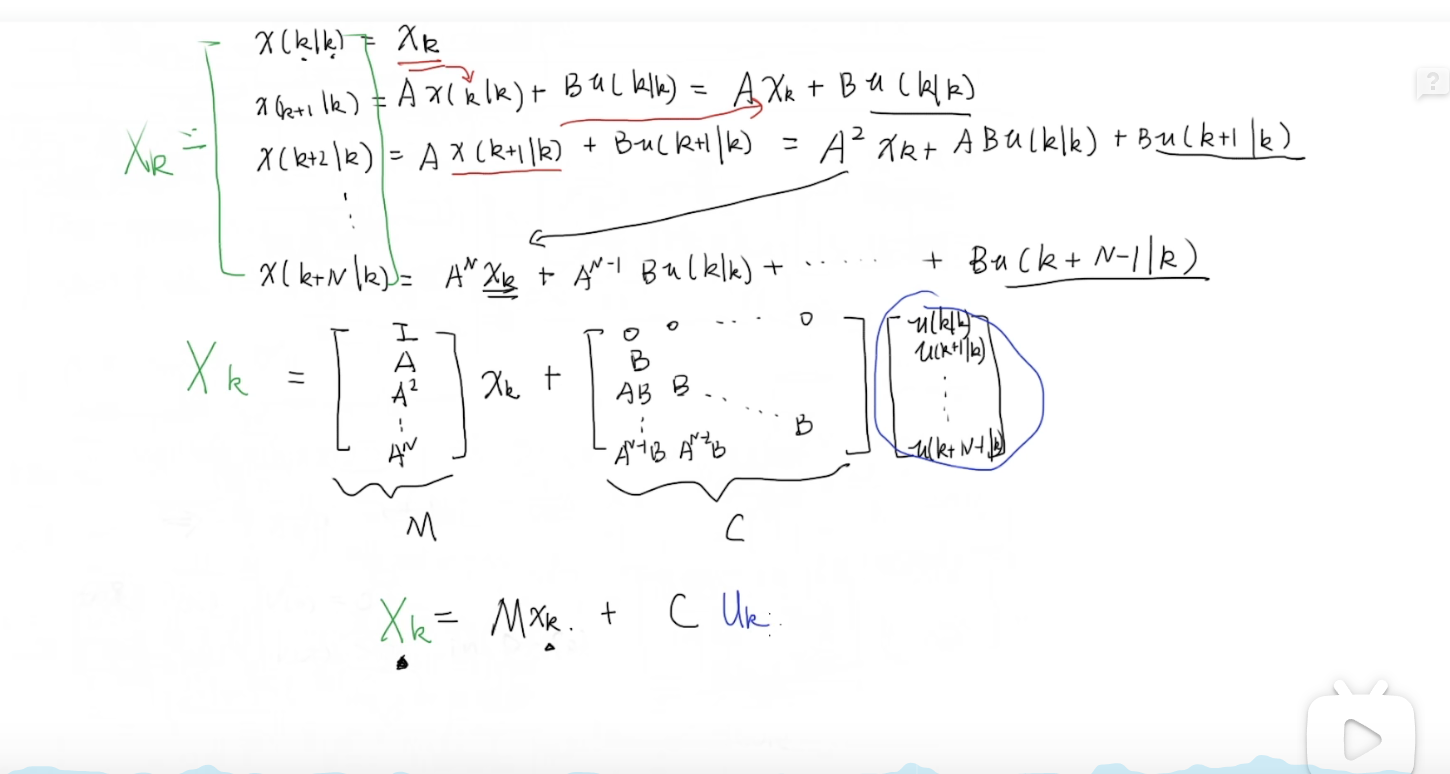 x(k|k) = x_k
x(k+1|k) = A x(k|k) + B u(k|k) = A x_k + B u(k|k)
X_k = x(k+2|k) = A x(k+1|k) + B u(k+1|k) = A² x_k + A B u(k|k) + B u(k+1|k)
⋮
x(k+N|k) = A^N x_k + A^{N-1} B u(k|k) + ······ + B u(k+N-1|k)
X_k = [I A A² ⋮ A^N] x_k + [0 0 ··· 0 B AB B ··· ··· ⋮ B A^{N-1}B A^{N-2}B] [u(k|k) u(k+1|k) ⋮ u(k+N-1|k)]
M C
X_k = M x_k + C U_k
?